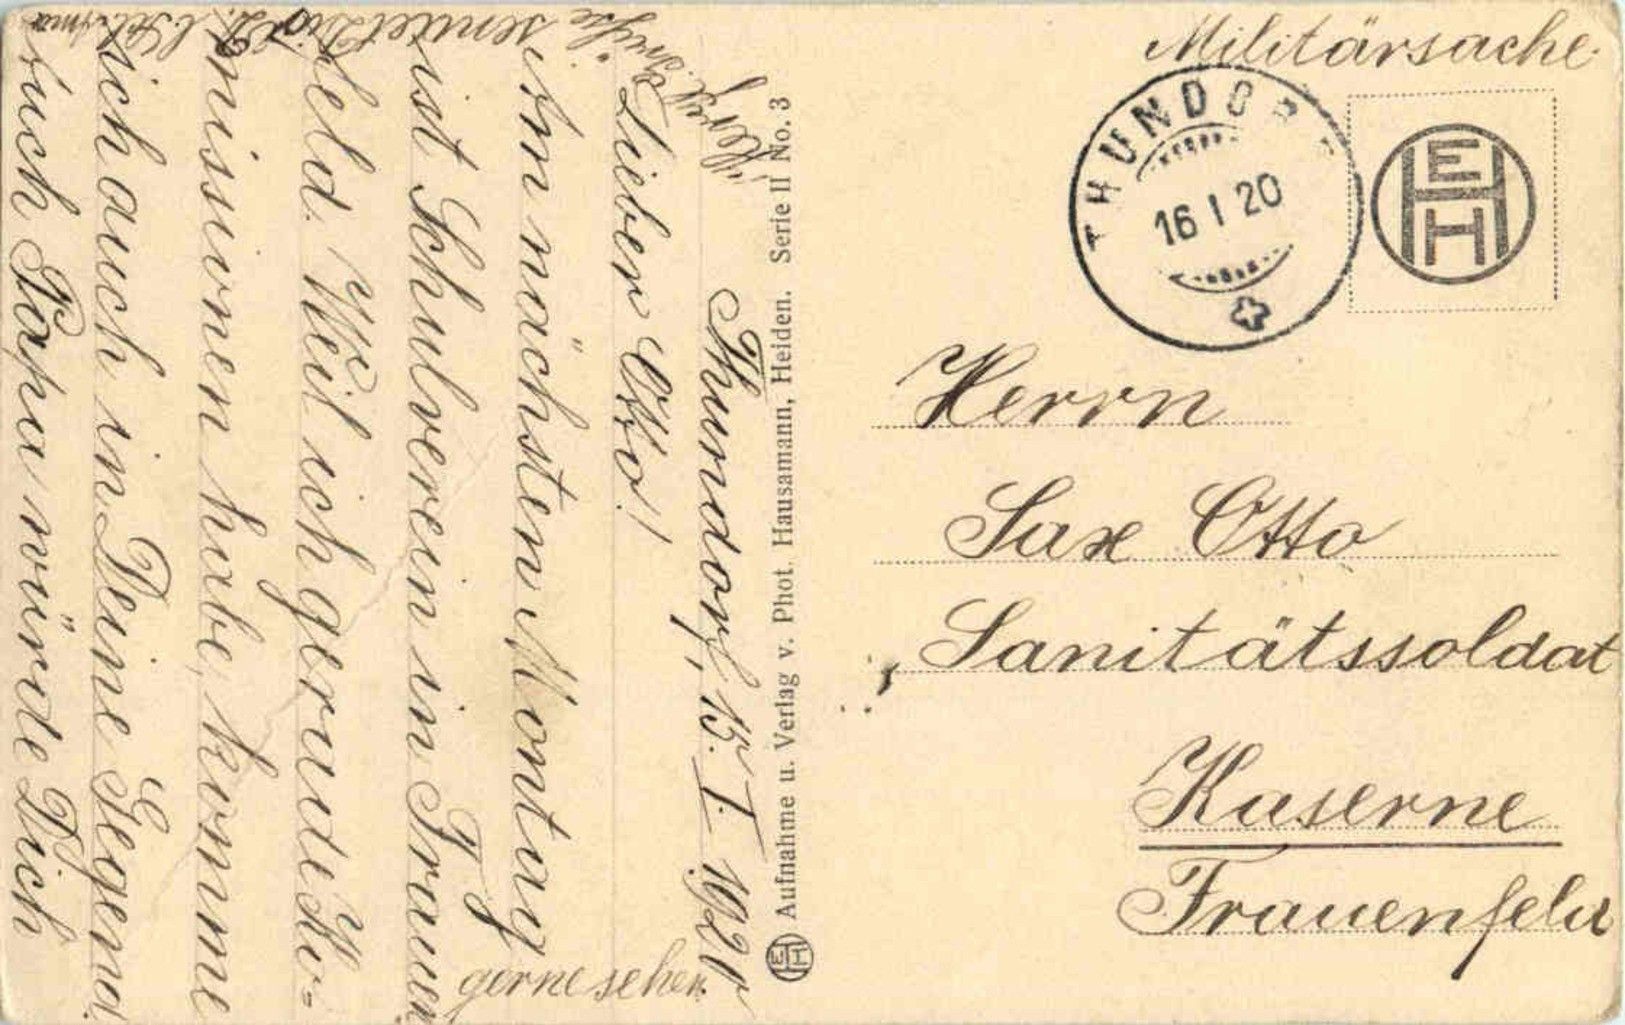 Militärsache.
THUNDORF
16 I 20
EHH
Herrn
Sax Otto
Sanitätssoldat
Kaserne
Frauenfeld
Aufnahme u. Verlag v. Phot. Hausamann, Heiden. Serie II No. 3
Thundorf, 15. I. 1920
Lieber Otto!
Am nächsten Montag
ist Schulverein in Frauen
feld. Weil ich gerade Ko-
missionen habe, komme
ich auch in Deine Gegend.
Auch Papa würde Dich
gerne sehen.
Herzl. Grüsse sendet Dir